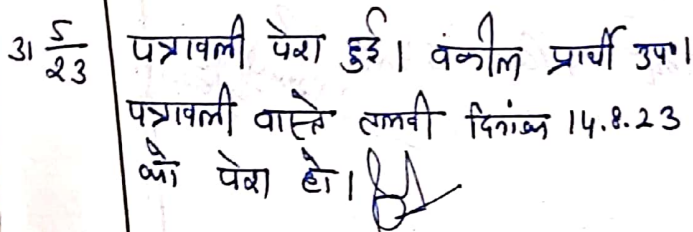 31 5/23 पत्रावली पेश हुई। वकील प्रार्थी उप।
पत्रावली वास्ते तलवी दिनांक 14.8.23
को पेश हो।